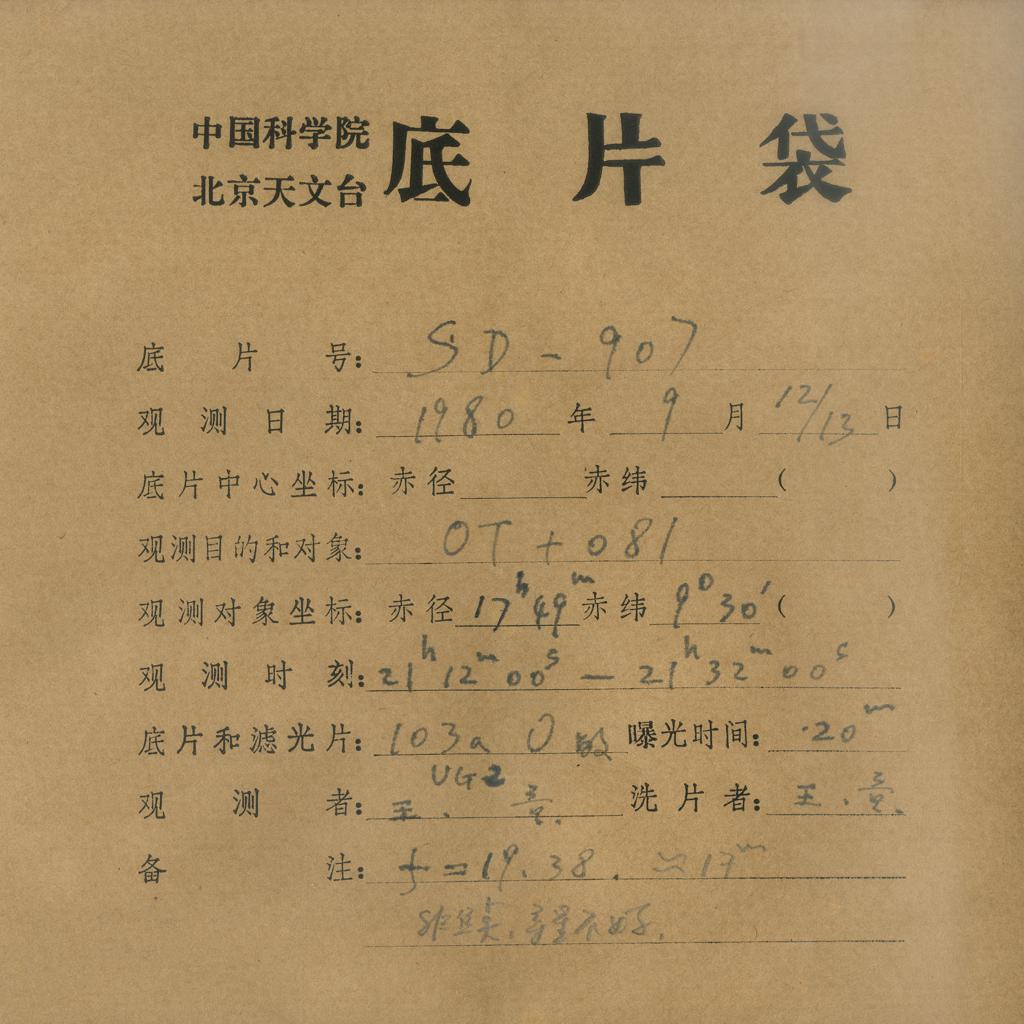 中国科学院
北京天文台
底片袋
底片号: SD-907
观测日期: 1980年 9月 12/13日
底片中心坐标: 赤径 赤纬 ( )
观测目的和对象: OT+081
观测对象坐标: 赤径 17h49m 赤纬 9°30′ ( )
观测时刻: 21h12m00s — 21h32m00s
底片和滤光片: 103a O 敏 曝光时间: 20m
UG2
观测者: 王. 洗片者: 王.
备注: f=19.38. ≈17m
不好.